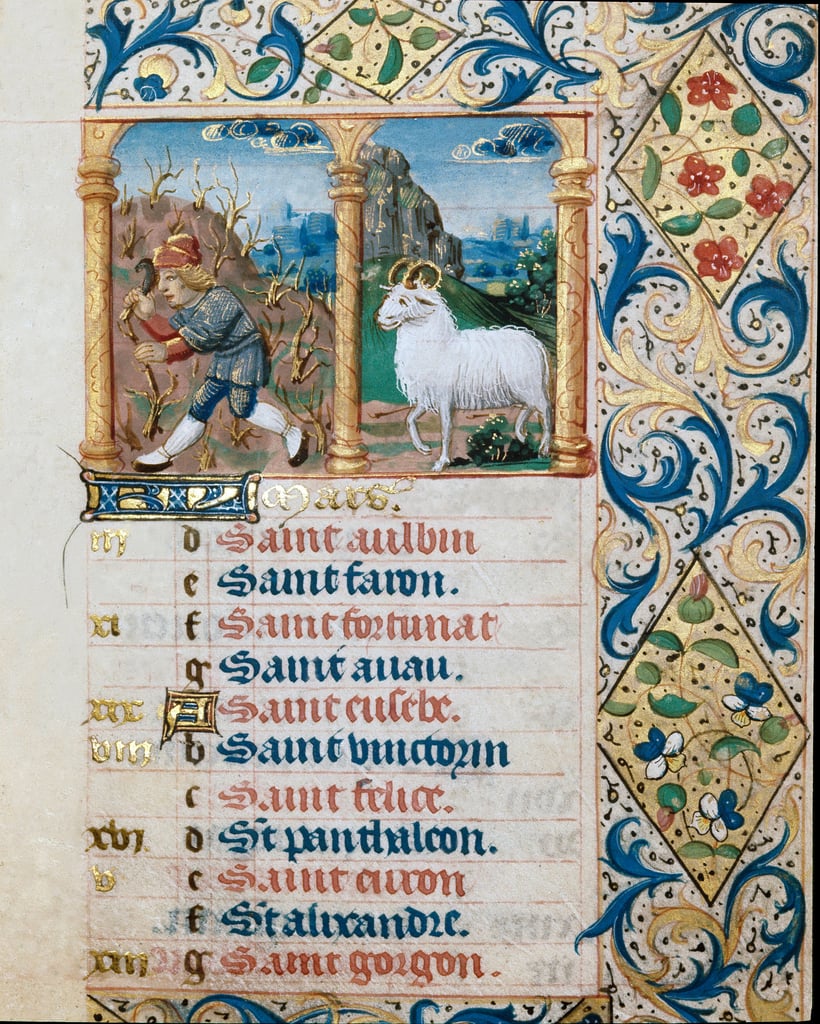 KL Mars.
iii d Saint aulbin
e Saint faron.
xi f Saint fortunat
g Saint auau.
xix A Saint eusebe.
viii b Saint vinctorin
c Saint felice.
xvi d St panthaleon.
v e Saint euron
f St alixandre.
xiii g Saint gorgon.